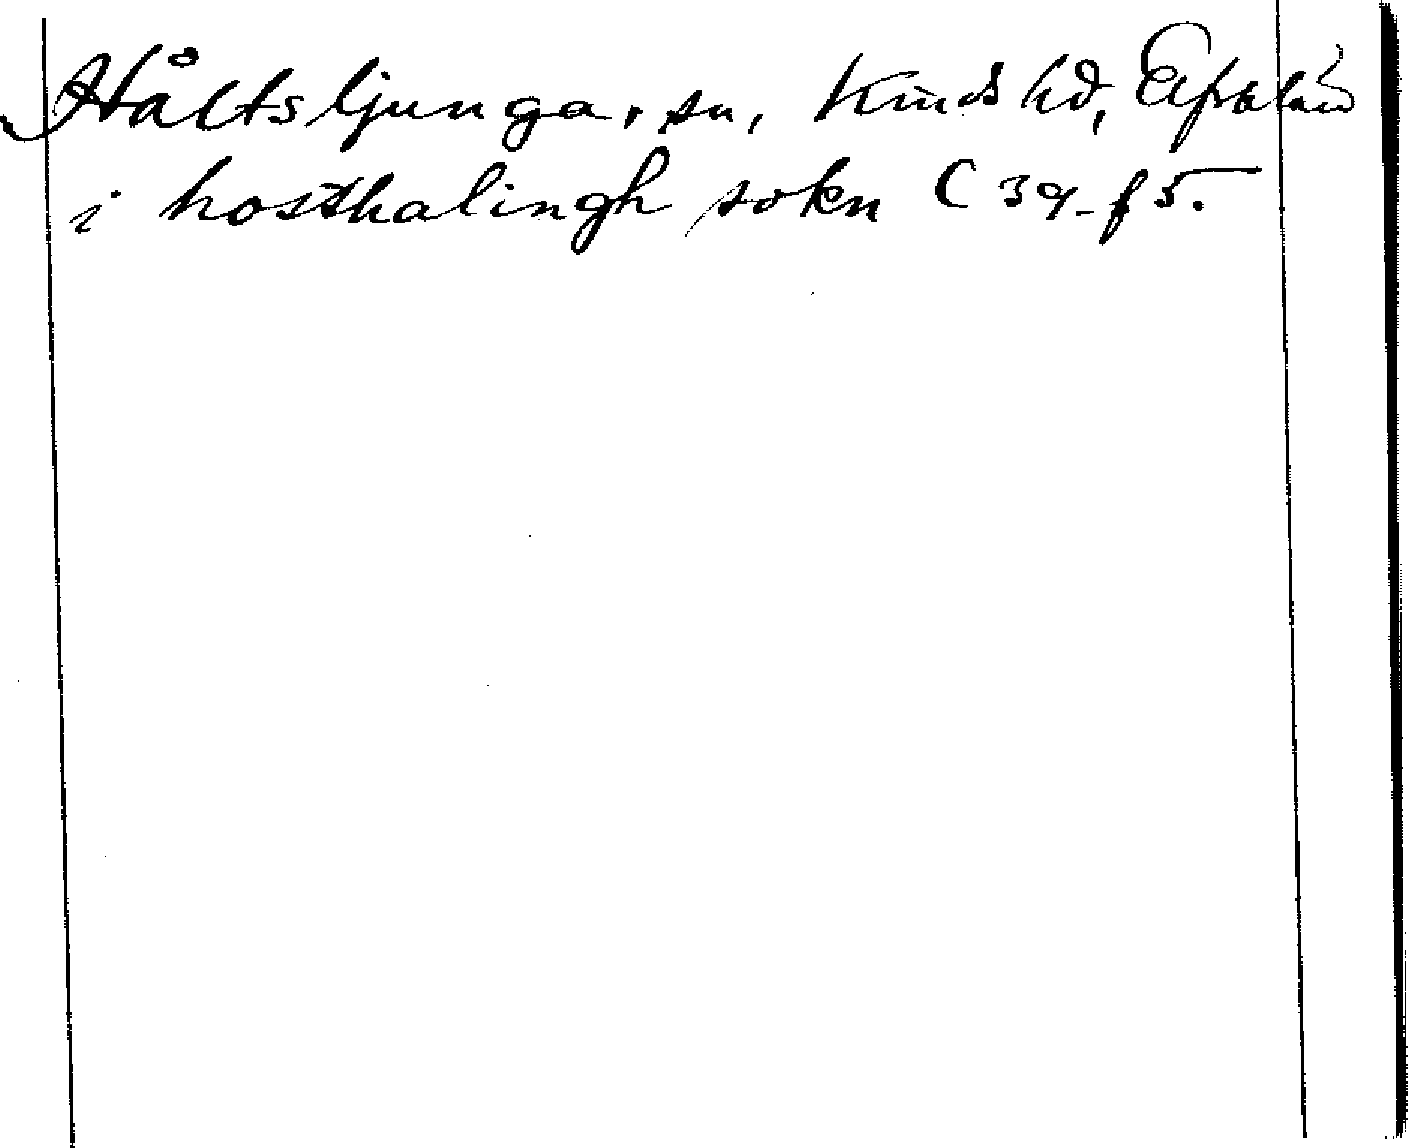 Håltsljunga, sn, Kinds hd, Älvsb län
i hosthalingh sokn C 39. f 5.